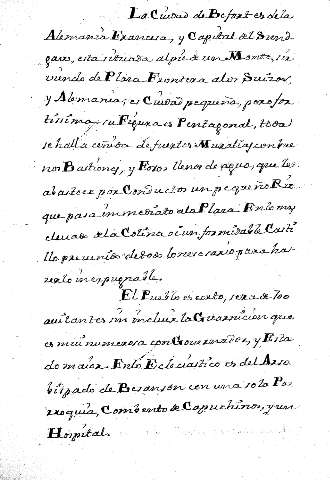 La Ciudad de Befort es de la
Alemania Francesa, y Capital del Sund
gaw, esta situada al pie de un Monte, sir
viendo de Plaza Frontera a los Suizos,
y Alemania; es Ciudad pequeña, pero for
tissima; su Figura es Pentagonal, toda
se halla ceñida de fuertes Murallas con bue
nos Bastiones, y Fosos llenos de agua, que les
abastece por Conductos un pequeño Rio
que pasa inmediato a la Plaza. En lo mas
elevado de la Colina ai un formidable Casti
llo prevenido de todo lo necesario para ha
zerlo inexpugnable.
El Pueblo es corto, sera de 700
avitantes sin incluir la Guarnicion que
es mui numerosa con Governador, y Esta
do maior. En lo Eclesiastico es del Arzo
bispado de Besanson con una sola Par
roquia, Combento de Capuchinos, y un
Hospital.